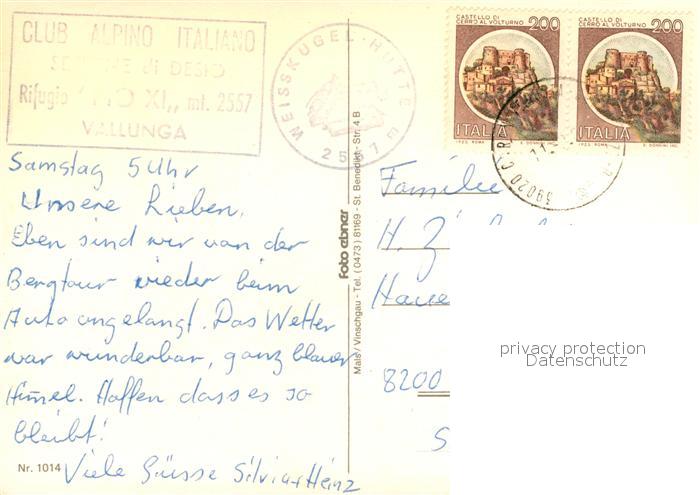 CLUB ALPINO ITALIANO
SEZIONE di DESIO
Rifugio "PIO XI,, mt. 2557
VALLUNGA
WEISSKUGEL-HÜTTE
2557 m
CASTELLO DI
CERRO AL VOLTURNO 200
ITALIA
CASTELLO DI
CERRO AL VOLTURNO 200
ITALIA
39020
Samstag 5 Uhr
Unsere Lieben,
Eben sind wir von der
Bergtour wieder beim
Auto angelangt. Das Wetter
war wunderbar, ganz blauer
Himel. Hoffen dass es so
bleibt!
Viele Grüsse Silvia + Heinz
Nr. 1014
foto ebner
Mals / Vinschgau - Tel. (0473) 81169 - St. Benedikt - Str. 4 B
Familie
H.
8200
privacy protection
Datenschutz